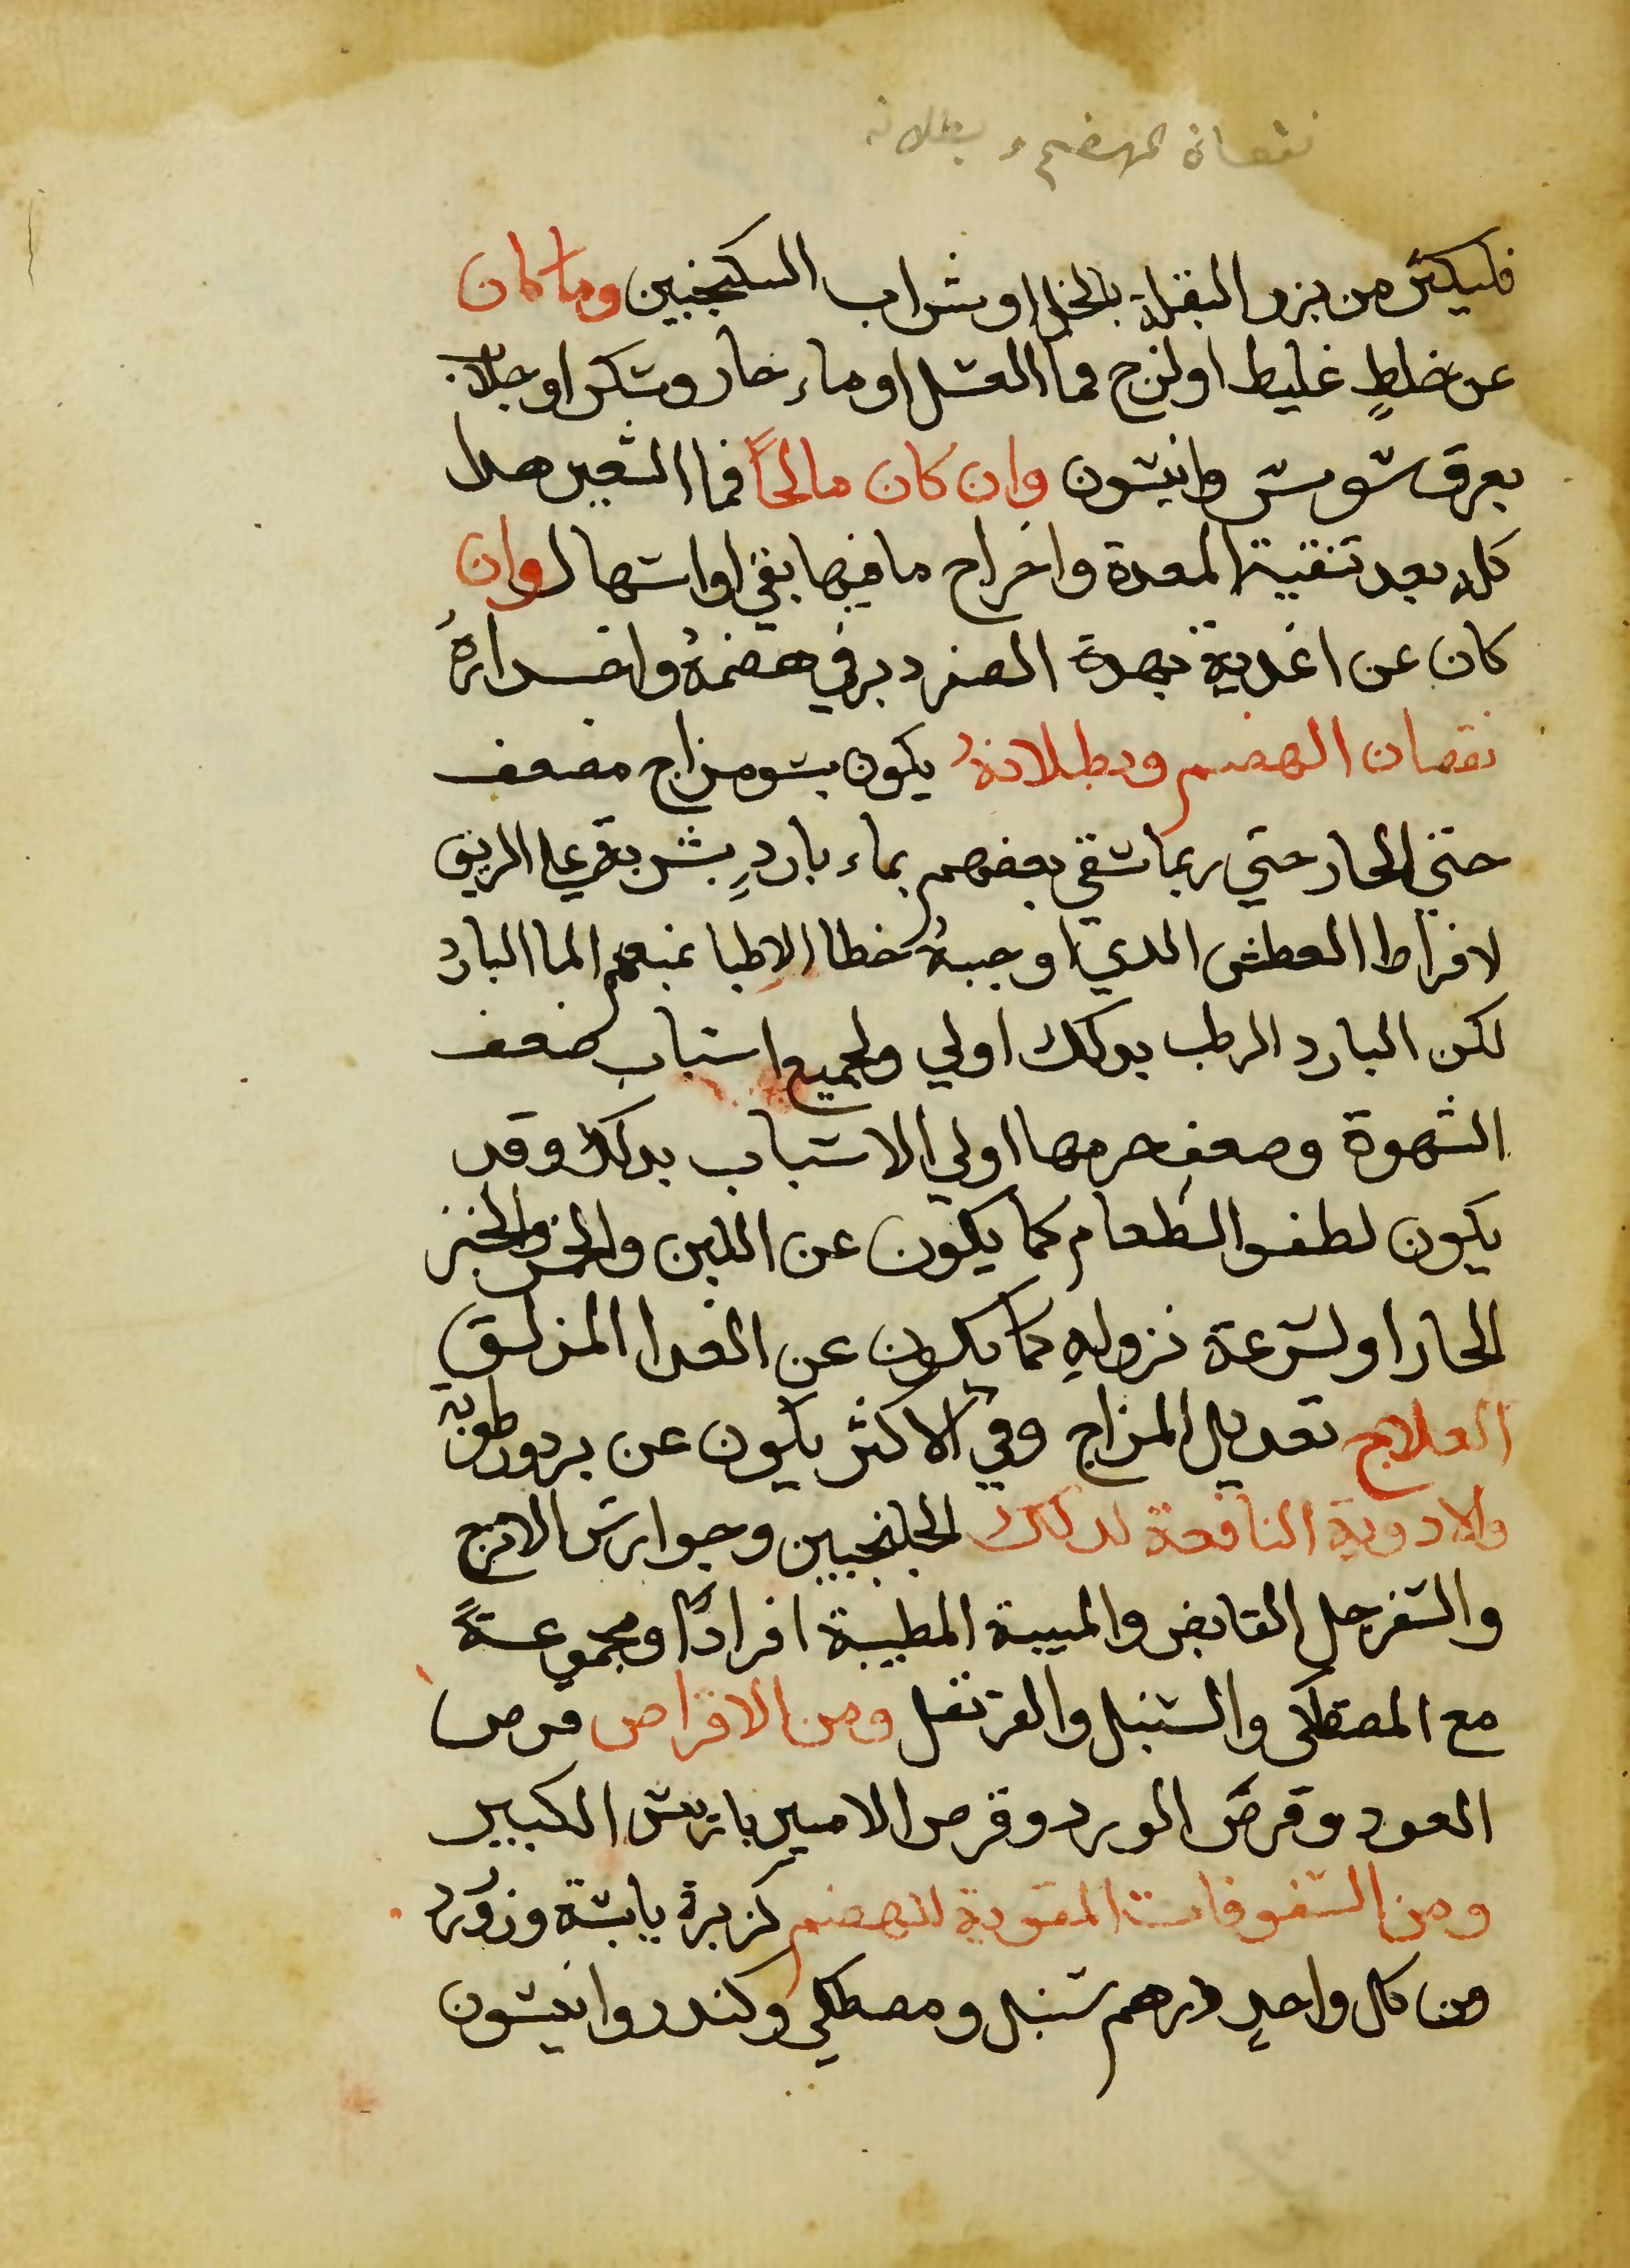 نقصان الهضم وبطلانه
فليكثر من بزر البقلة بالخل او شراب السكنجبين وما كان
عن خلطٍ غليظ او لزج فما العسل او ماء حار وسكر او جلاب
بعرق سوس وانيسون وان كان مالحاً فما الشعير هدا
كله بعد تنقية المعدة واخراج ما فيها بقي او اسهال وان
كان عن اغدية بهدة الصفر دبر في هضمهُ وانحدارهُ
نقصان الهضم وبطلانهُ يكون بسو مزاج مضعف
حتي الحار حتي ربما شفي بعضهم بماء باردٍ بشربة علي الريق
لافراط العطش الدي اوجبهُ خطا الاطبا بمنعهم الما البارد
لكن البارد الرطب بدلك اولي ولجميع اسباب ضعف
الشهوة وضعف جرمها اولي الاسباب بدلك وقد
يكون لطفو الطعام كما يكون عن اللبن والخمر والخبز
الحار او لسرعة نزولهِ كما يكون عن الغدا المزلق
العلاج تعديل المزاج وفي الاكثر يكون عن برد ورطوبة
والادوية النافعة لدلك الجلنجبين وجوارش الاترج
والسفرجل القابض والميبة المطيبة افراداً ومجموعةً
مع المصتكي والسنبل والقرنفل ومن الاقراص قرص
العود وقرص الورد وقرص الاميرباريس الكبير
ومن السفوفات المقوية للهضم كزبرة يابسة وزرورد
من كل واحدٍ درهم سنبل ومصطكي وكندر وانيسون